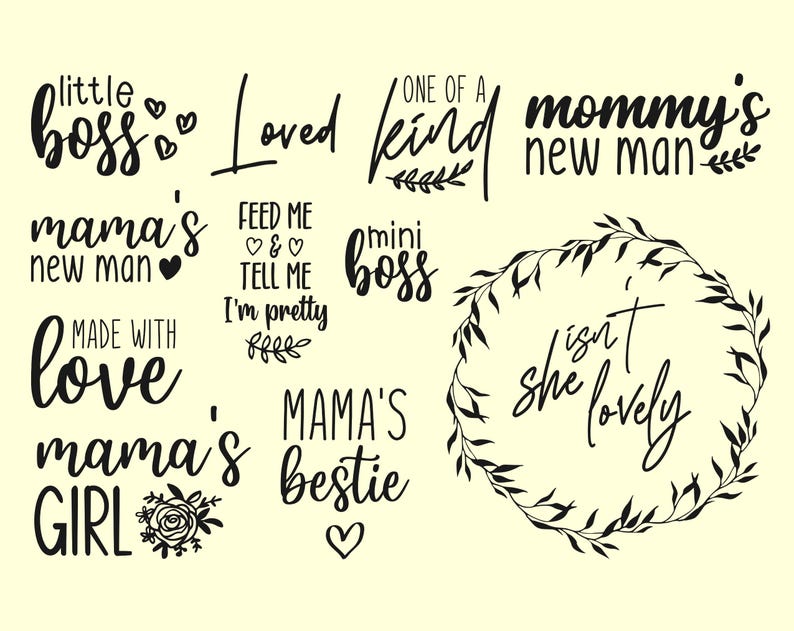 little
boss
Loved
ONE OF A
kind
mommy's
new man
mama's
new man
FEED ME
&
TELL ME
I'm pretty
mini
boss
isn't
she
lovely
MADE WITH
love
mama's
GIRL
MAMA'S
bestie